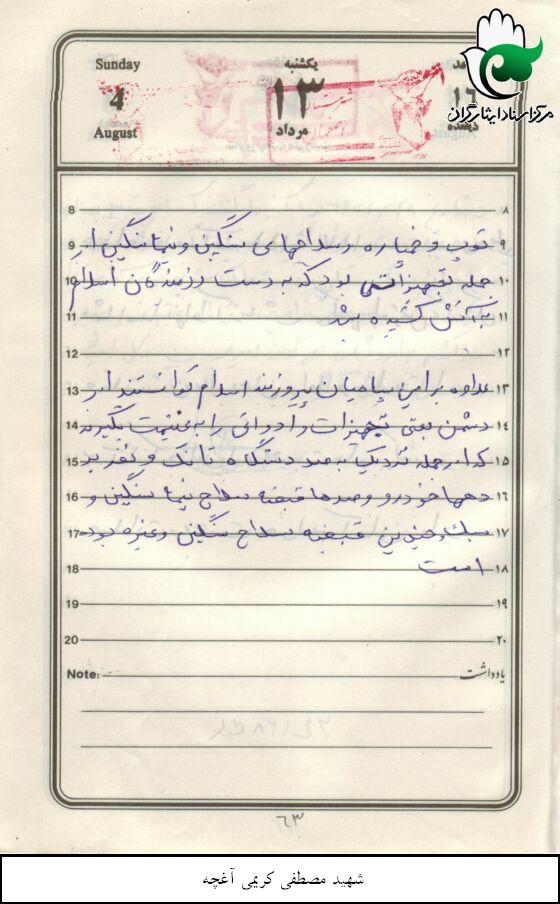 Sunday
4
August
یکشنبه
۱۳
مرداد
۱۶
مرکز اسناد ایثارگران
8 ۸
9 توپ و خمپاره و سلاحهای سنگین و نیمه سنگین از ۹
10 جمله تجهیزاتی بود که به دست رزمندگان اسلام ۱۰
11 به آتش کشیده شد ۱۱
12 ۱۲
13 علاوه بر این سپاهیان پیروزمند اسلام توانستند از ۱۳
14 دشمن بعثی تجهیزات و ادواتی را به غنیمت بگیرند ۱۴
15 که از جمله نزدیک به صد دستگاه تانک و نفربر ۱۵
16 دهها خودرو و صدها قبضه سلاح نیمه سنگین و ۱۶
17 سبک و چندین قبضه سلاح سنگین و غیره بوده ۱۷
18 است ۱۸
19 ۱۹
20 ۲۰
Note: یادداشت
۶۳
شهید مصطفی کریمی آغچه